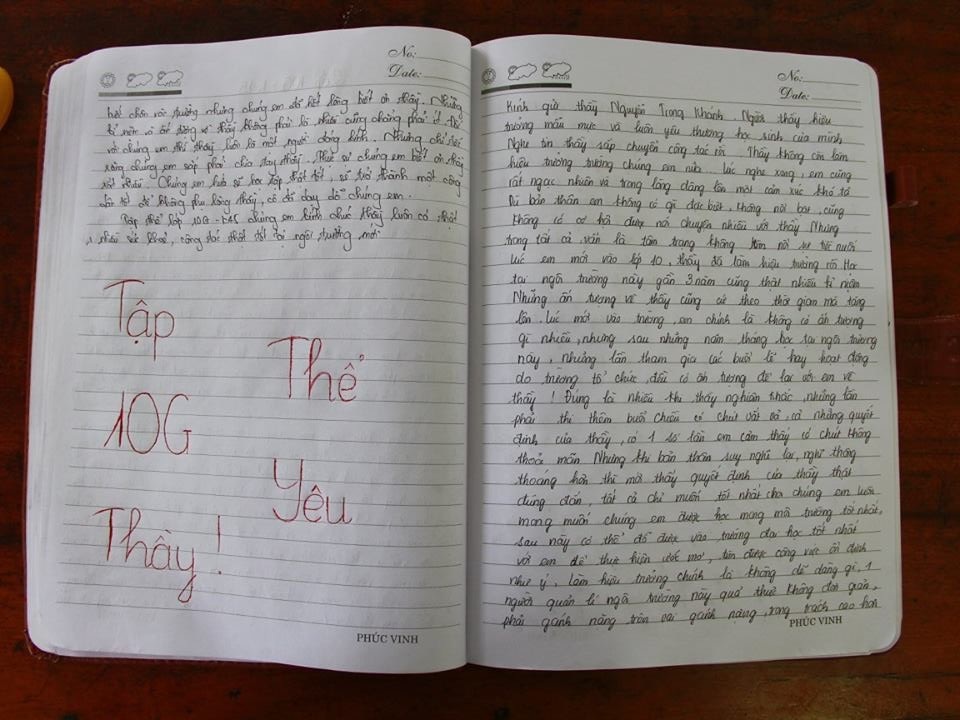 No:
Date:
bước chân vào trường nhưng chúng em đã hết lòng biết ơn thầy. Những
kỉ niệm và ấn tượng về thầy không phải là nhiều cũng chẳng phải ít. Đối
với chúng em thì thầy luôn là một người đáng kính. Nhưng chỉ tiếc
rằng chúng em sắp phải chia tay thầy. Thực sự chúng em biết ơn thầy
rất nhiều. Chúng em hứa sẽ học tập thật tốt, sẽ trở thành một công
dân tốt để không phụ lòng thầy, cô đã dạy dỗ chúng em.
Tập thể lớp 10G chúng em kính chúc thầy luôn có thật
nhiều sức khoẻ, công tác thật tốt tại ngôi trường mới
Tập
Thể
10G
Yêu
Thầy!
PHÚC VINH
No:
Date:
Kính gửi thầy Nguyễn Trọng Khánh. Người thầy hiệu
trưởng mẫu mực và luôn yêu thương học sinh của mình
Nghe tin, thầy sắp chuyển công tác rồi. Thầy không còn làm
hiệu trưởng trường chúng em nữa... lúc nghe xong, em cũng
rất ngạc nhiên và trong lòng dâng lên một cảm xúc khó tả
Dù bản thân em không có gì đặc biệt, không nổi bật, cũng
không có cơ hội được nói chuyện nhiều với thầy Nhưng
trong tất cả vẫn là tâm trạng không kìm nổi sự tiếc nuối
Lúc em mới vào lớp 10, thầy đã làm hiệu trưởng rồi Học
tại ngôi trường này gần 3 năm cũng thật nhiều kỉ niệm
Những ấn tượng về thầy cũng cứ theo thời gian mà tăng
lên. Lúc mới vào trường, em chính là không có ấn tượng
gì nhiều, nhưng sau những năm tháng học tại ngôi trường
này, những lần tham gia các buổi lễ hay hoạt động
do trường tổ chức, đều có ấn tượng để lại với em về
thầy! Đúng là nhiều khi thầy nghiêm khắc, những lần
phải thi thêm buổi chiều có chút vất vả, cả những quyết
định của thầy, có 1 số lần em cảm thấy có chút không
thoả mãn Nhưng khi bản thân suy nghĩ lại, nghĩ thông
thoáng hơn thì mới thấy quyết định của thầy thật
đúng đắn, tất cả chỉ muốn tốt nhất cho chúng em luôn
mong muốn chúng em được học trong môi trường tốt nhất,
sau này có thể đỗ được vào trường đại học tốt nhất
với em để thực hiện ước mơ, tìm được công việc ổn định
như ý, làm hiệu trưởng chính là không dễ dàng gì, 1
người quản lí ngôi trường này quả thực không đơn giản,
phải gánh nặng trên vai gánh nặng, trọng trách cao hơn
PHÚC VINH